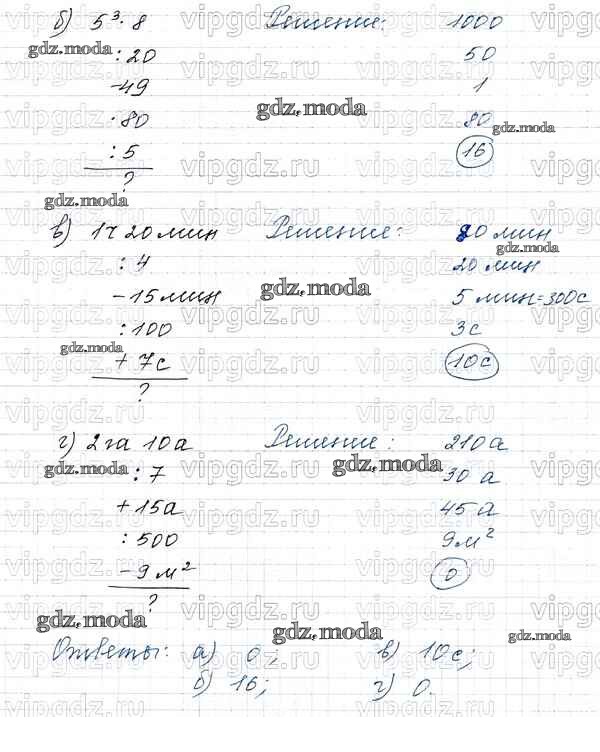 б) 5³·8 Решение: 1000
:20 50
-49 1
·80 80
:5 16
?
в) 1ч 20 мин Решение: 80 мин
:4 20 мин
-15 мин 5 мин=300с
:100 3с
+7с 10с
?
г) 2га 10а Решение: 210а
:7 30 а
+15а 45 а
:500 9м²
-9 м² 0
?
Ответы: а) 0; в) 10с;
б) 16; г) 0.
gdz.moda
vipgdz.ru